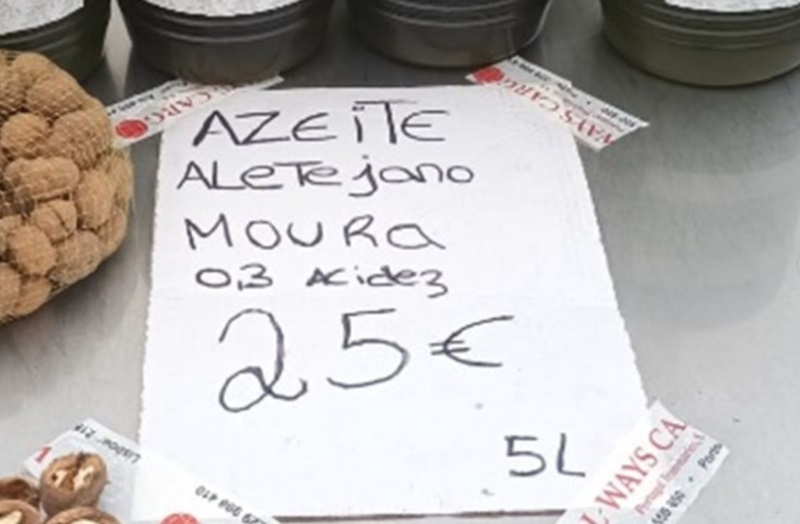 AZEiTE
ALeTejano
MOURa
0,3 Acidez
25€
5L
WAYS CARG
WAYS CA
Lisboa: 21